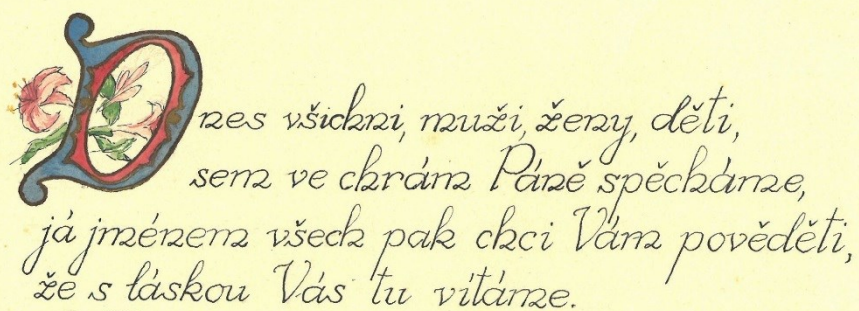 Dnes všichni, muži, ženy, děti,
sem ve chrám Páně spěcháme,
já jménem všech pak chci Vám pověděti,
že s láskou Vás tu vítáme.